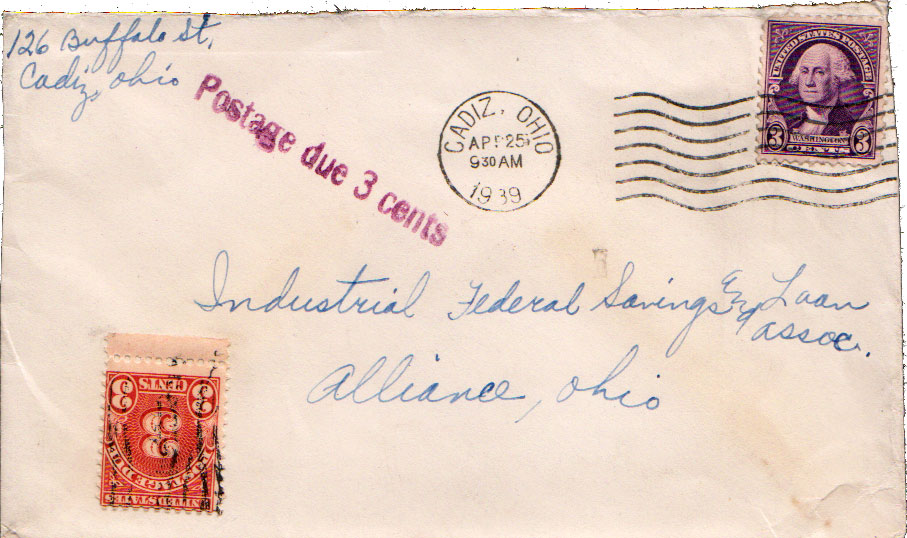 126 Buffalo St,
Cadiz, Ohio
Postage due 3 cents
CADIZ, OHIO
APR 25
9 30 AM
1939
UNITED STATES POSTAGE
3 WASHINGTON 3
Industrial Federal Savings and Loan
assoc.
Alliance, Ohio
UNITED STATES
POSTAGE DUE
3
3 CENTS 3